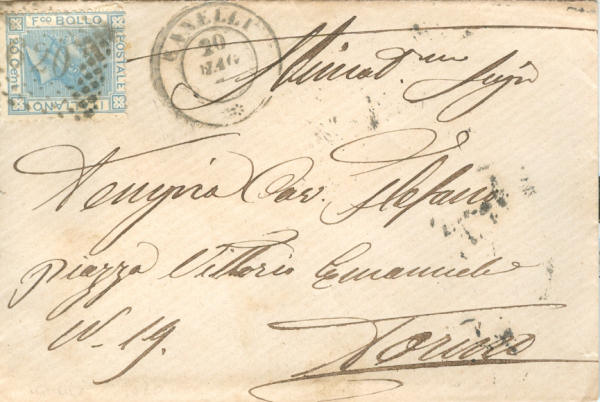 Fco BOLLO
POSTALE
20 Cent
ITALIANO
CANELLI
20
MAG
Stimat.mo Sigr
Cav. Stefano
piazza Vittorio Emanuele
N. 19.
Torino